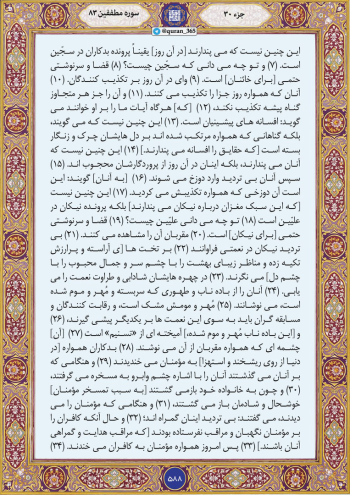 جزء ۳۰
سوره مطففین ۸۳
@quran_365
این چنین نیست که می پندارند [در آن روز] یقیناً پرونده بدکاران در سجّین
است. (۷) و تو چه می دانی که سجّین چیست؟ (۸) قضا و سرنوشتی
حتمی [برای خائنان] است. (۹) وای در آن روز بر تکذیب کنندگان. (۱۰)
آنان که همواره روز جزا را تکذیب می کنند. (۱۱) و آن را جز هر متجاوز
گناه پیشه تکذیب نکند، (۱۲) [که] هرگاه آیات ما را بر او خوانند می
گوید: افسانه های پیشینیان است. (۱۳) این چنین نیست که می گویند،
بلکه گناهانی که همواره مرتکب شده اند بر دل هایشان چرک و زنگار
بسته است [که حقایق را افسانه می پندارند.] (۱۴) این چنین نیست که
آنان می پندارند، بلکه اینان در آن روز از پروردگارشان محجوب اند. (۱۵)
سپس آنان بی تردید وارد دوزخ می شوند. (۱۶) [به آنان] گویند: این
است آن دوزخی که همواره تکذیبش می کردید. (۱۷) این چنین نیست
[که این سبک مغزان درباره نیکان می پندارند] بلکه پرونده نیکان در
علیّین است (۱۸) تو چه می دانی علیّین چیست؟ (۱۹) قضا و سرنوشتی
حتمی [برای نیکان] است. (۲۰) مقربان آن را مشاهده می کنند. (۲۱) بی
تردید نیکان در نعمتی فراوانند (۲۲) بر تخت ها [ی آراسته و پرارزش
تکیه زده و مناظر زیبای بهشت را با چشم سر و جمال محبوب را با
چشم دل] می نگرند. (۲۳) در چهره هایشان شادابی و طراوت نعمت را می
یابی. (۲۴) آنان را از باده ناب و طهوری که سربسته و مُهر و موم شده
است، می نوشانند. (۲۵) مُهر و مومش مشک است، و رقابت کنندگان و
مسابقه گران باید به سوی این نعمت ها بر یکدیگر پیشی گیرند، (۲۶)
و [این باده ناب مُهر و موم شده،] آمیخته ای از «تسنیم» است (۲۷) [آن]
چشمه ای که همواره مقربان از آن می نوشند. (۲۸) بدکاران همواره [در
دنیا از روی ریشخند و استهزا] به مؤمنان می خندیدند (۲۹) و هنگامی که
بر آنان می گذشتند آنان را با اشاره چشم وابرو به مسخره می گرفتند،
(۳۰) و چون به خانواده خود بازمی گشتند [به سبب تمسخر مؤمنان]
خوشحال و شادمان باز می گشتند، (۳۱) و هنگامی که مؤمنان را می
دیدند، می گفتند: بی تردید اینان گمراه اند؛ (۳۲) و حال آنکه کافران را
بر مؤمنان نگهبان و مراقب نفرستاده بودند [که مراقب هدایت و گمراهی
آنان باشند.] (۳۳) پس امروز همواره مؤمنان به کافران می خندند. (۳۴)
۵۸۸